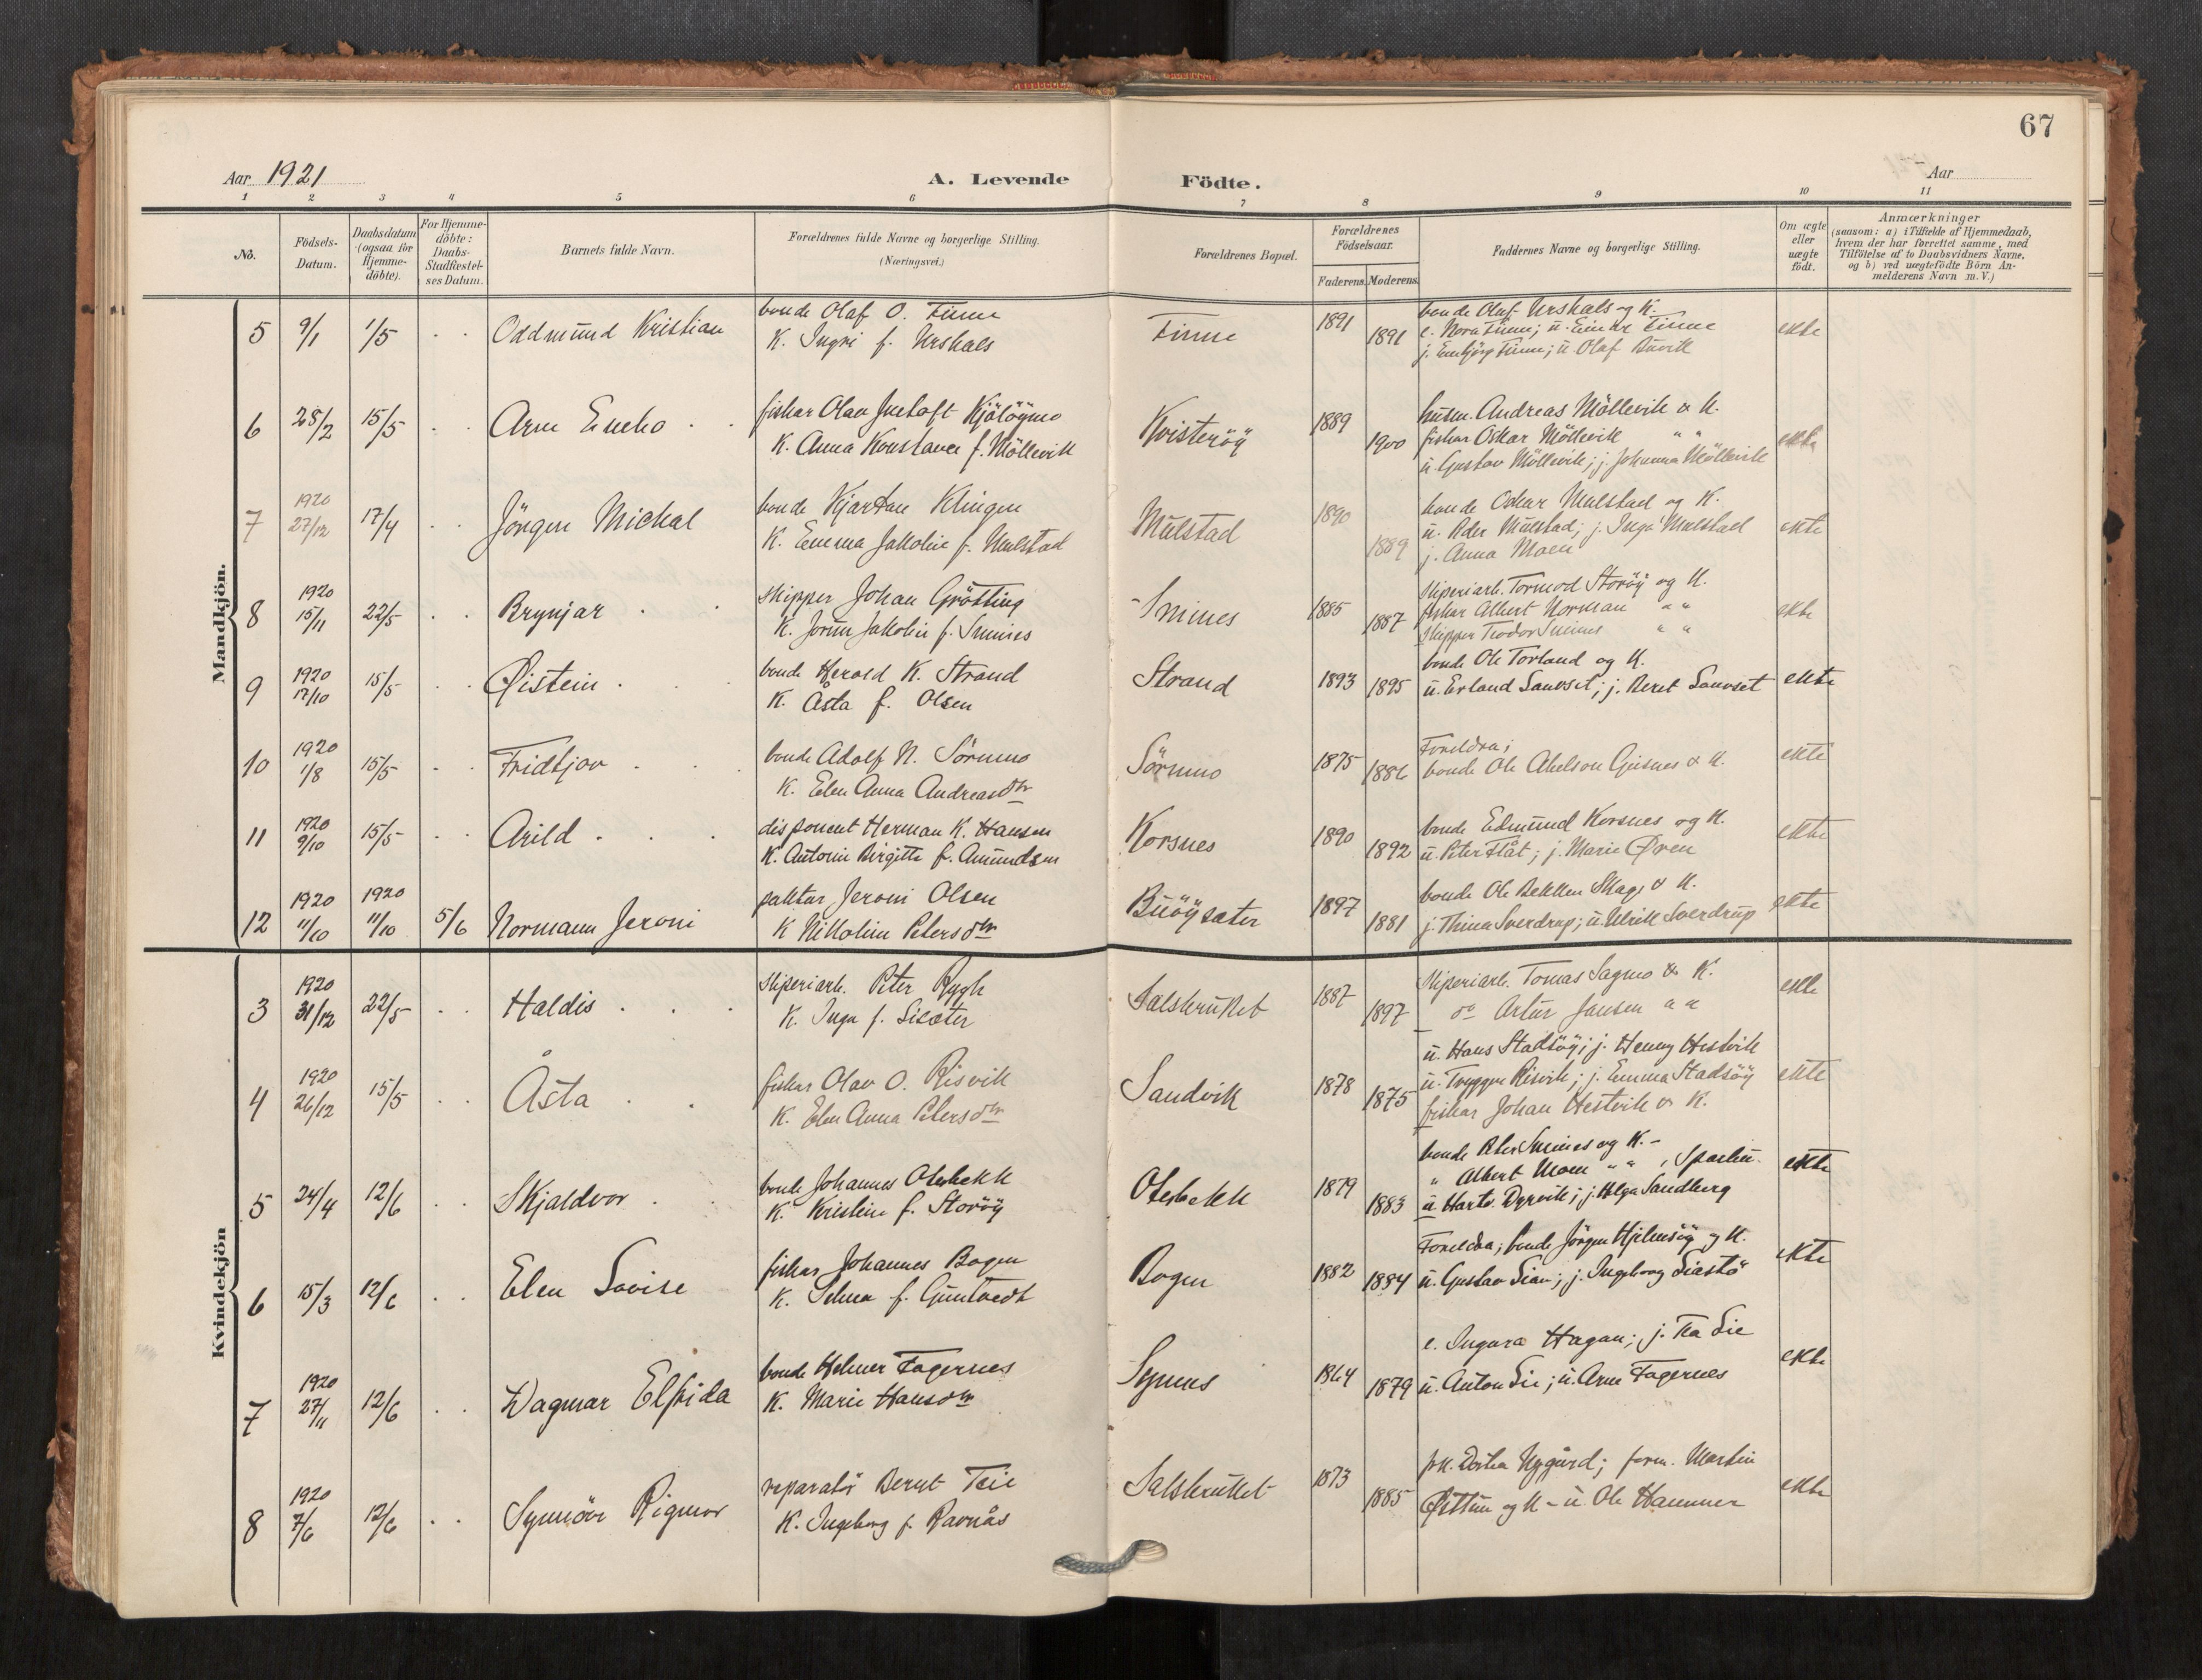 67
Aar 1921
A. Levende Födte.
Aar
1 2 3 4 5 6 7 8 9 10 11
No.
Födsels-Datum.
Daabsdatum (ogsaa for Hjemme-döbte).
For Hjemme-döbte: Daabs-Stadfæstel-ses Datum.
Barnets fulde Navn.
Forældrenes fulde Navne og borgerlige Stilling. (Næringsvei.)
Forældrenes Bopæl.
Forældrenes Födselsaar.
Faderens. Moderens.
Faddernes Navne og borgerlige Stilling.
Om ægte eller uægte födt.
Anmærkninger
(saasom: a) i Tilfælde af Hjemmedaab,
hvem der har forrettet samme, med
Tilföielse af to Daabsvidners Navne,
og b) ved uægtefödte Börn An-
melderens Navn m. V.)
Mandkjön.
5 9/1 1/5 Oddmund Kristian
bonde Olaf O. Finne
K. Ingri f. Urskals
Finne 1891 1891
bonde Oluf Urskals og K.
e. Nora Finne; u. Einar Finne
j. Finne; u. Olaf Buvik
ekte
6 28/2 15/5 Arne
fiskar Olav Kjöløymo
K. Anna Konstance f. Möllevik
Kvisteröy 1889 1900
husm. Andreas Möllevik & K.
fiskar Oskar Möllevik " "
u. Gustav Möllevik; j. Johanna Möllevik
ekte
7 1920 27/12 17/4 Jörgen Mickal
bonde Kjartan Klingen
K. Emma Jakobine f. Mulstad
Mulstad 1890 1889
bonde Oskar Mulstad og K.
u. Peder Mulstad; j. Inga Mulstad
j. Anna Moen
ekte
8 1920 15/11 22/5 Brynjar
skipper Johan Grötting
K. Jorun Jakobine f. Snines
Snines 1885 1887
sliperiarb. Tormod Storöy og K.
fiskar Albert Norman " "
skipper Teodor Snines " "
ekte
9 1920 17/10 15/5 Øistein
bonde Herold K. Strand
K. Åsta f. Olsen
Strand 1893 1895
bonde Ole Torland og K.
u. Erland Sauvset; j. Beret Sauvset
ekte
10 1920 1/8 15/5 Fridtjov
bonde Adolf N. Sörmo
K. Elen Anna Andreasdtr
Sörmo 1875 1886
Foreldra;
bonde Ole Abelson Gjisnes & K.
ekte
11 1920 9/10 15/5 Arild
disponent Herman K. Hansen
K. Antonie Birgitte f. Amundsen
Korsnes 1890 1892
bonde Edmund Korsnes og K.
u. Peter Flåt; j. Marie Øren
ekte
12 1920 11/10 1920 11/10 5/6 Normann Jeroni
paktar Jeroni Olsen
K Nikoline Petersdtr
Buöysæter 1897 1881
bonde Ole Bekken Skage & K.
j. Thina Sverdrup; u. Ulrik Sverdrup
ekte
Kvindekjön
3 1920 31/12 22/5 Haldis
sliperiarb. Peter Rygh
K. Inga f. Lisæter
Salsbruket 1887 1897
sliperiarb. Tomas Sagmo & K.
do Artur Jansen " "
ekte
4 1920 26/12 15/5 Åsta
fiskar Olav O. Risvik
K. Elen Anna Petersdtr
Sandvik 1878 1875
u. Hans Stadsöy; j. Henny Hestvik
u. Tryggve Risvik; j. Emma Stadsöy
fiskar Johan Hestvik & K.
ekte
5 24/4 12/6 Skjaldvor
bonde Johannes Oterbekk
K. Kristine f. Storöy
Oterbekk 1879 1883
bonde Peter Snines og K. -
" Albert Moen " "
u. Dyrvik; j. Helga Sandberg
ekte
6 15/3 12/6 Elen Lovise
fiskar Johannes Bogen
K. Selma f. Guntvedt
Bogen 1882 1884
Foreldra; bonde Jörgen Hjelmsöy og K.
u. Gustav Lian; j. Ingeborg Liastö
ekte
7 1920 27/11 12/6 Dagmar Elfrida
bonde Helmer Fagernes
K. Marie Hansdtr
1864 1879
e. Ingvara Hagan; j. Tea Lie
u. Anton Lie; u. Arne Fagernes
ekte
8 1920 7/6 12/6 Synnöve Rigmor
reparatör Bernt Teie
K. Ingeborg f. Ravnås
Salsbruket 1873 1885
frk. Nygård; form. Martin
og K - u. Ole Hammer
ekte